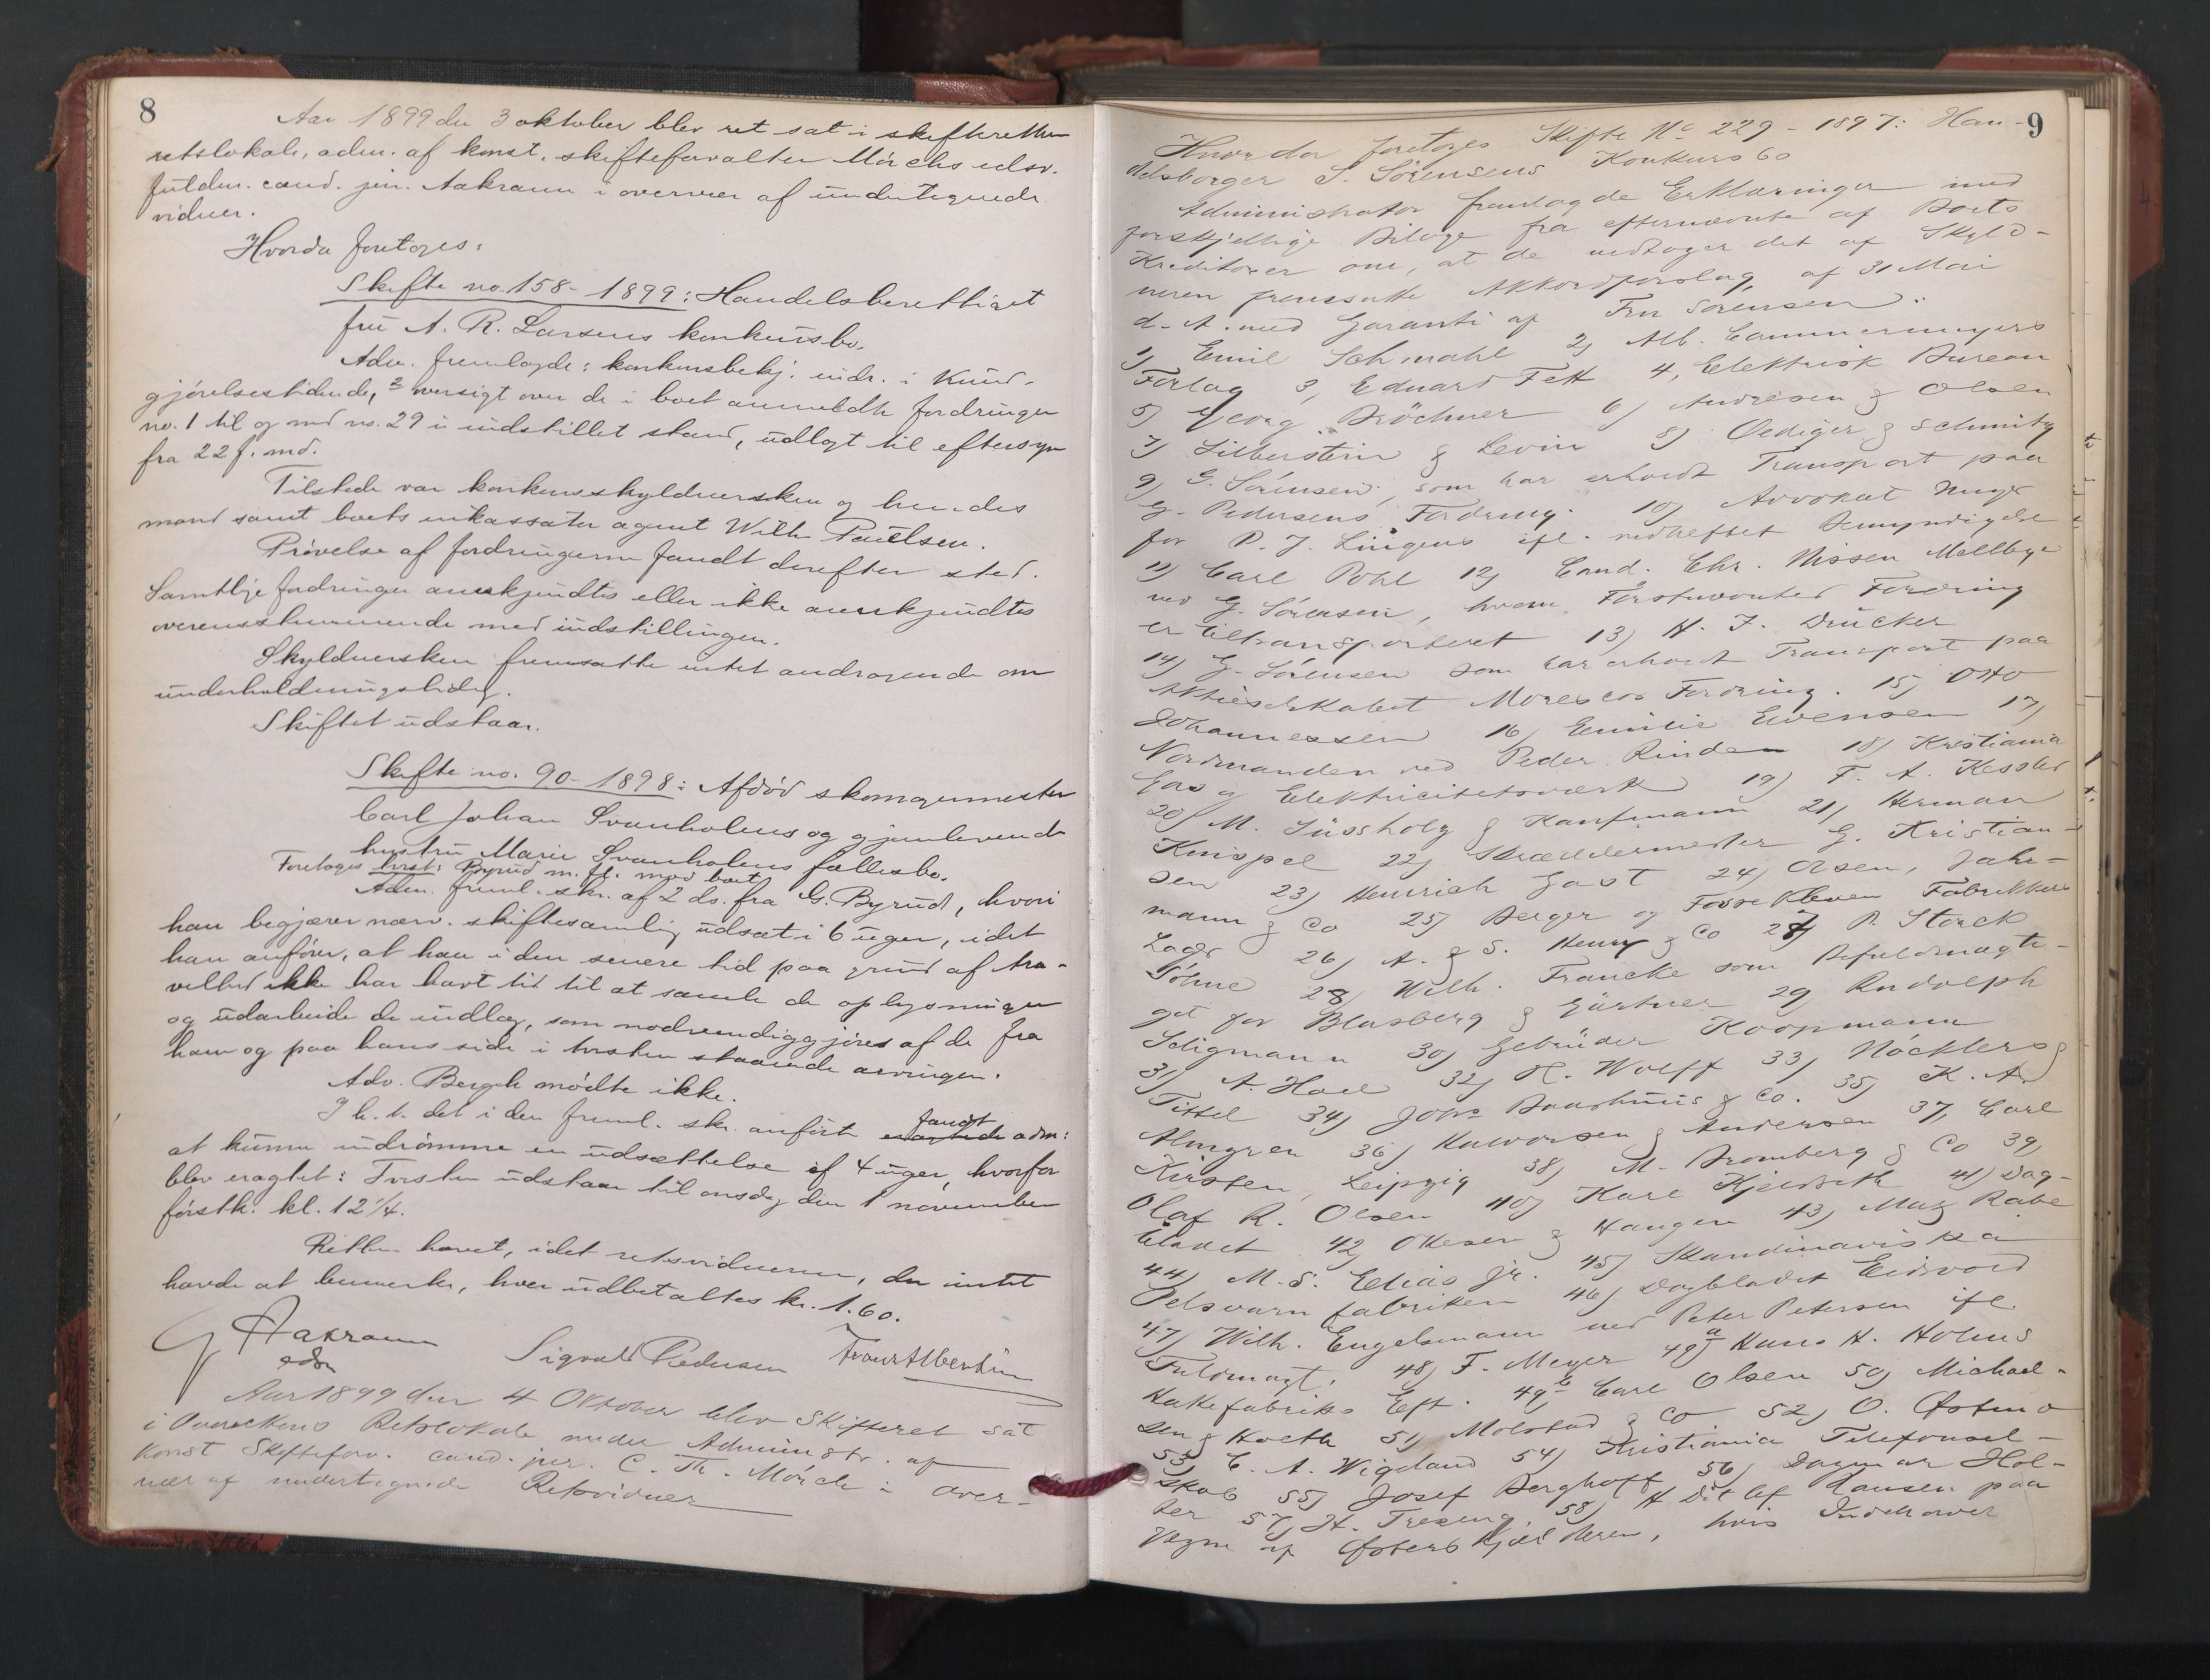 8
Aar 1899 den 3 oktober blev ret sat i skifterettens
retslokale, adm. af konst. skifteforvalter Mörchs edsv.
fuldm. cand. jur. Aakrann i overvær af undertegnede
vidner.
Hvorda foretoges:
Skifte no. 158 - 1899: Handelsberettiget
frü A. R. Larsens konkursbo.
Adv. fremlagde: konkursbekj. indr. i Kund-
gjörelsestidende, 2 oversigt over de i boet anmeldte fordringer
no. 1 til og med no. 29 i indstillet stand, udlagt til eftersyn
fra 22 f. md.
Tilstede var konkursskyldnersken og hendes
mand samt boets inkassator agent Wilh. Paülsen.
Prövelse af fordringerne fandt derefter sted.
Samtlige fordringer anerkjendtes eller ikke anerkjendtes
overensstemmende med indstillingen.
Skyldnersken fremsatte intet andragende om
underholdningsbidrag.
Skiftet udstaar.
Skifte no. 90 - 1898: Afdöd skomagermester
Carl Johan Svanholms og gjenlevende
hustru Marie Svanholms fællesbo.
Foretoges tvist: Byrud m. fl. mod boet
Adm. freml. skr. af 2 ds. fra G. Byrud, hvori
han begjærer nærv. skiftesamling udsat i 6 uger, idet
han anförer, at han i den senere tid paa grund af tra-
velhed ikke har havt tid til at samle de oplysninger
og udarbeide de indlæg, som nödvendiggjöres af de fra
ham og paa hans side i tvisten staaende arvinger.
Adv. Bergh mödte ikke.
I h. t. det i den freml. skr. anförte fandt adm:
at kunne indrömme en udsættelse af 4 uger, hvorfor
blev eragtet: Tvisten udstaar til onsdag den 1 november
förstk. kl. 12 1/4.
Retten hævet, idet retsvidnerne, der intet
havde at bemerke, hver udbetaltes kr. 1.60.
Aakrann
edsv
Sigvald Pedersen
Frantz Albertsen
Aar 1899 den 4 Oktober blev Skifteret sat
i Retslokale under Administr. af
konst Skifteforv. cand. jur. C. Th. Mörch i over-
vær af undertegnede Retsvidner
9
Hvorda foretoges Skifte No 229 - 1897: Han-
delsborger S. Sörensens Konkursbo
Administrator fremlagde Erklæringer med
forskjellige Bilage fra efternævnte af Boets
Kreditorer om, at de vedtager det af Skyld-
neren fremsatte Akkordforslag af 31 Mai
d. A. med Garanti af Fru Sörensen:
1) Emil Schmahl 2) Alb. Cammermeyers
Forlag 3, Eduard Fett 4, Elektrisk Bureau
5) Georg Bröchner 6) Andresen & Olsen
7) Silberstein & Levin 8) Oediger & Schmitz
9) G. Sörensen, som har erholdt Transport paa
G. Pedersens Fordring. 10) Advokat Unger
for P. J. Lingens ifl. vedheftet Bemyndigelse
11) Carl Pohl 12) Cand. Chr. Nissen Mellbye
ved G. Sörensen, hvem Förstnævntes Fordring
er tiltransporteret 13) H. J. Drücker
14) G. Sörensen som har erholdt Transport paa
Aktieselskabet Morescos Fordring. 15) Otto
Johannessen 16) Emilie Evensen 17)
Nordmanden ved Peder Rinden 18) Kristiania
Gas og Elektricitetsværk 19) F. A. Kessler
20) M. Süssholz & Kaufmann 21) Herman
Knispel 22) Skræddermester G. Kristian-
sen 23) Heinrich Jast 24) Olsen, Jahr-
mann & Co 25) Berger og Fossekleven Fabrikkers
Lager 26) A. & S. Henry & Co 27) P. Storck
Söhne 28) Wilh. Francke som Befuldmægti-
get for Blasberg & Gärtner 29) Rudolph
Seligmann 30) Gebrüder Koopmann
31) A. Hoel 32) H. Wolff 33) Nöcklers &
Tittel 34) Johs Baashuus & Co. 35) K. A.
Almgren 36) Halvorsen & Andersen 37) Carl
Kirsten, Leipzig 38) M. Bromberg & Co 39)
Olaf R. Olsen 40) Karl Kjelseth 41) Dag-
bladet 42) Olesen & Haugen 43) Max Rabe
44) M. S. Elias jr. 45) Skandinaviska
Pelsvarufabriken 46) Dagbladet Eidsvold
47) Wilh. Engelsmann ved Peter Petersen ifl.
Fuldmagt. 48) F. Meyer 49a) Hans H. Holms
Kakefabriks Eft. 49b) Carl Olsen 50) Michael-
sen & Hoeth 51) Molstad & Co 52) O. Østmo
53) C. A. Wigeland 54) Kristiania Telefonsel-
skab 55) Josef Berghoff 56) Dagmar Hol-
ter 57) H. Treseng 58) H Ditlef Hansen paa
Vegne af Østers Kjælderen, hvis Indehaver